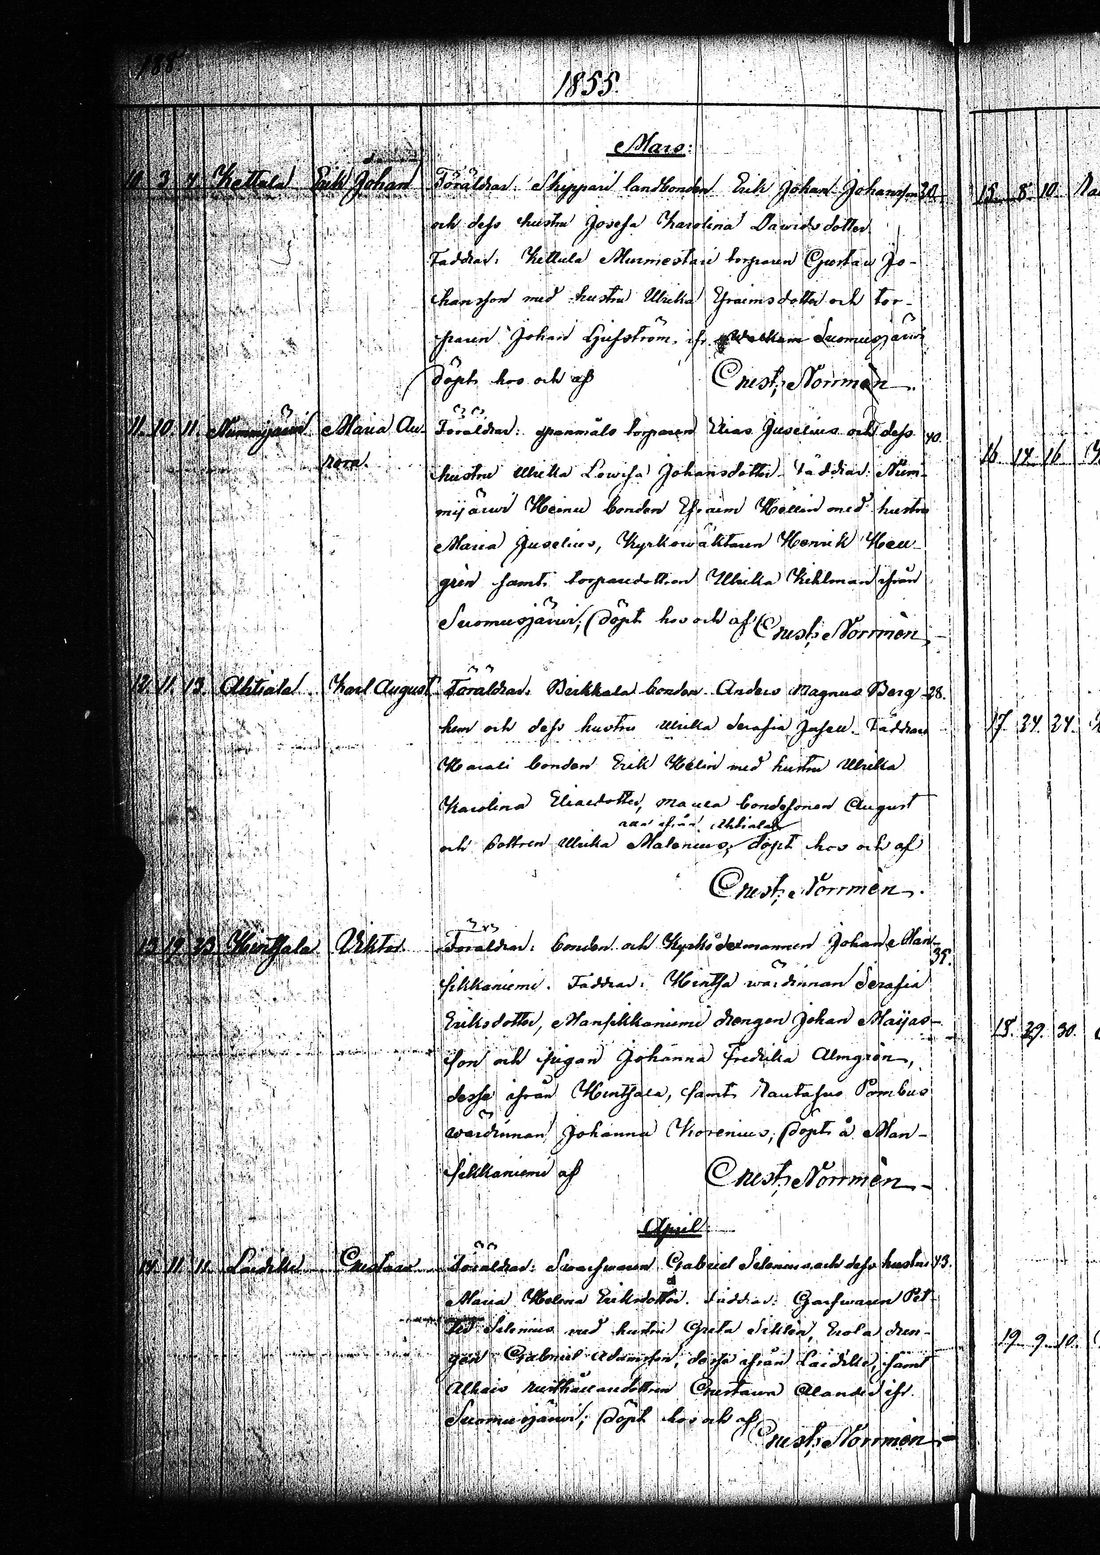 188
1855.
Mars:
10. 3. 4. Kettula Erik Johan Föräldrar: Skyppäri landbonden Erik Johan Johansson 30.
och dess hustru Josefa Karolina Davidsdotter.
Faddrar: Kettula Murmestari torparen Gustav Jo-
hansson med hustru Ulrika Efraimsdotter och tor-
paren Johan Ljufström, ifr. Suomusjärvi
döpt hos och af Christ. Norrmén.
11. 10. 11. Nummijärvi Maria Au- Föräldrar: spannmåls torparen Elias Juselius och dess 40.
rora. hustru Ulrika Lovisa Johansdotter. Faddrar: Num-
mijärvi Heinu bonden Efraim Hellin med hustru
Maria Juselius, Kyrkowäktaren Henrik Hell-
grén samt torparedottren Ulrika Kihlman ifrån
Suomusjärvi, döpt hos och af Christ. Norrmén.
12. 11. 13. Ahtiala Karl August Föräldrar: Beikkala bonden Anders Magnus Berg- 28.
hem och dess hustru Ulrika Serafia Jafell. Faddrar
bonden Erik Hélin med hustru Ulrika
Karolina Eliasdotter, bondesonen August
alla ifrån Ahtiala
och dottren Ulrika Malenius, döpt hos och af
Christ. Norrmén.
13. 19. 23. Hintsala Viktor Föräldrar: bonden och Kyrkosexmannen Johan Man- 35.
sikkaniemi. Faddrar: Hintsa wärdinnan Serafia
Eriksdotter, Mansikkaniemi drengen Johan Maijas-
son och pigan Johanna Fredrika Almgrén,
desse ifrån Hintsala, samt Rautasuo Pombus
wärdinnan Johanna Korenius, döpt å Man-
sikkaniemi af Christ. Norrmén.
April
14. 11. 11. Laidike Gustava Föräldrar: Gabriel Selenius och dess hustru 43.
Maria Helena Eriksdotter. Faddrar: Pet-
ter Selenius med hustru Greta Siklén, Erola dren-
gen Gabriel Adamsson, desse ifrån Laidike, samt
rusthållaredottren Gustava Alander ifr.
Suomusjärvi, döpt hos och af
Christ. Norrmén.
15. 8. 10.
16. 14. 16.
17. 24. 24.
18. 29. 30.
19. 9. 10.